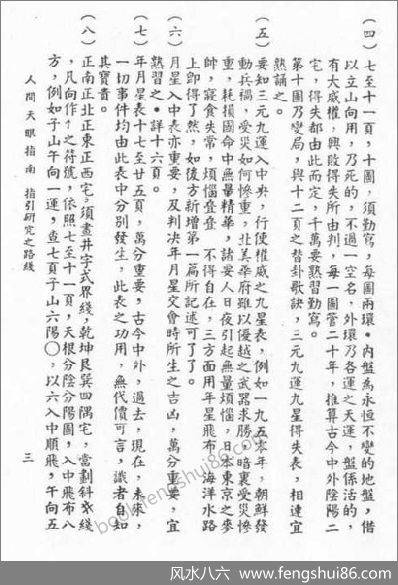 (四)七至十一頁，十圖，須勤寫，每圖兩環。內盤為永恒不變的地盤，借
以立山向用，乃死的，不過一空名，外環乃各運之天運，盤係活的，
有大威權，興敗得失所由判，每一圖管二十年，推算古今中外陰陽二
宅，得失都由此而定，千萬要熟習勤寫。
第十圖乃變局，與十二頁之替卦歌訣，三元九運九星得失表，相連宜
熟誦之。
(五)要知三元九運入中央，行使權威之九星表，例如一九五零年，朝鮮發
動兵禍，受災如何慘重，北美華府雖以優越之武器求勝，暗裏受災慘
重，耗損國命中無量精華，諸要人日夜引起無量煩惱，日本東京之麥
帥，寢食失常，煩惱叠叠　不得自在，三方面用年星飛布，海洋水路
上即得了然，如後方新增第一篇所記述可了了。
(六)月星入中表亦重要，及判决年月星交會時所生之吉凶，萬分重要，宜
熟習之。詳十六頁。
(七)年月星表十七至廿五頁，萬分重要，古今中外，過去，現在，未來，
一切事件均由此表中分別發生，此表之功用，無代價可言，識者自知
其寶貴。
(八)正南正北正東正西宅，須畫井字式界綫，乾坤艮巽四隅宅，當劃斜式綫
，凡向作个之符號，依照七至十一頁，天根分陰分陽圖，入中飛布八
方，例如子山午向一運，查七頁子山六陽〇，以六入中順飛，午向五
人間天眼指南　指引研究之路綫　三
book.fengshui86.com
风水八六 - www.fengshui86.com